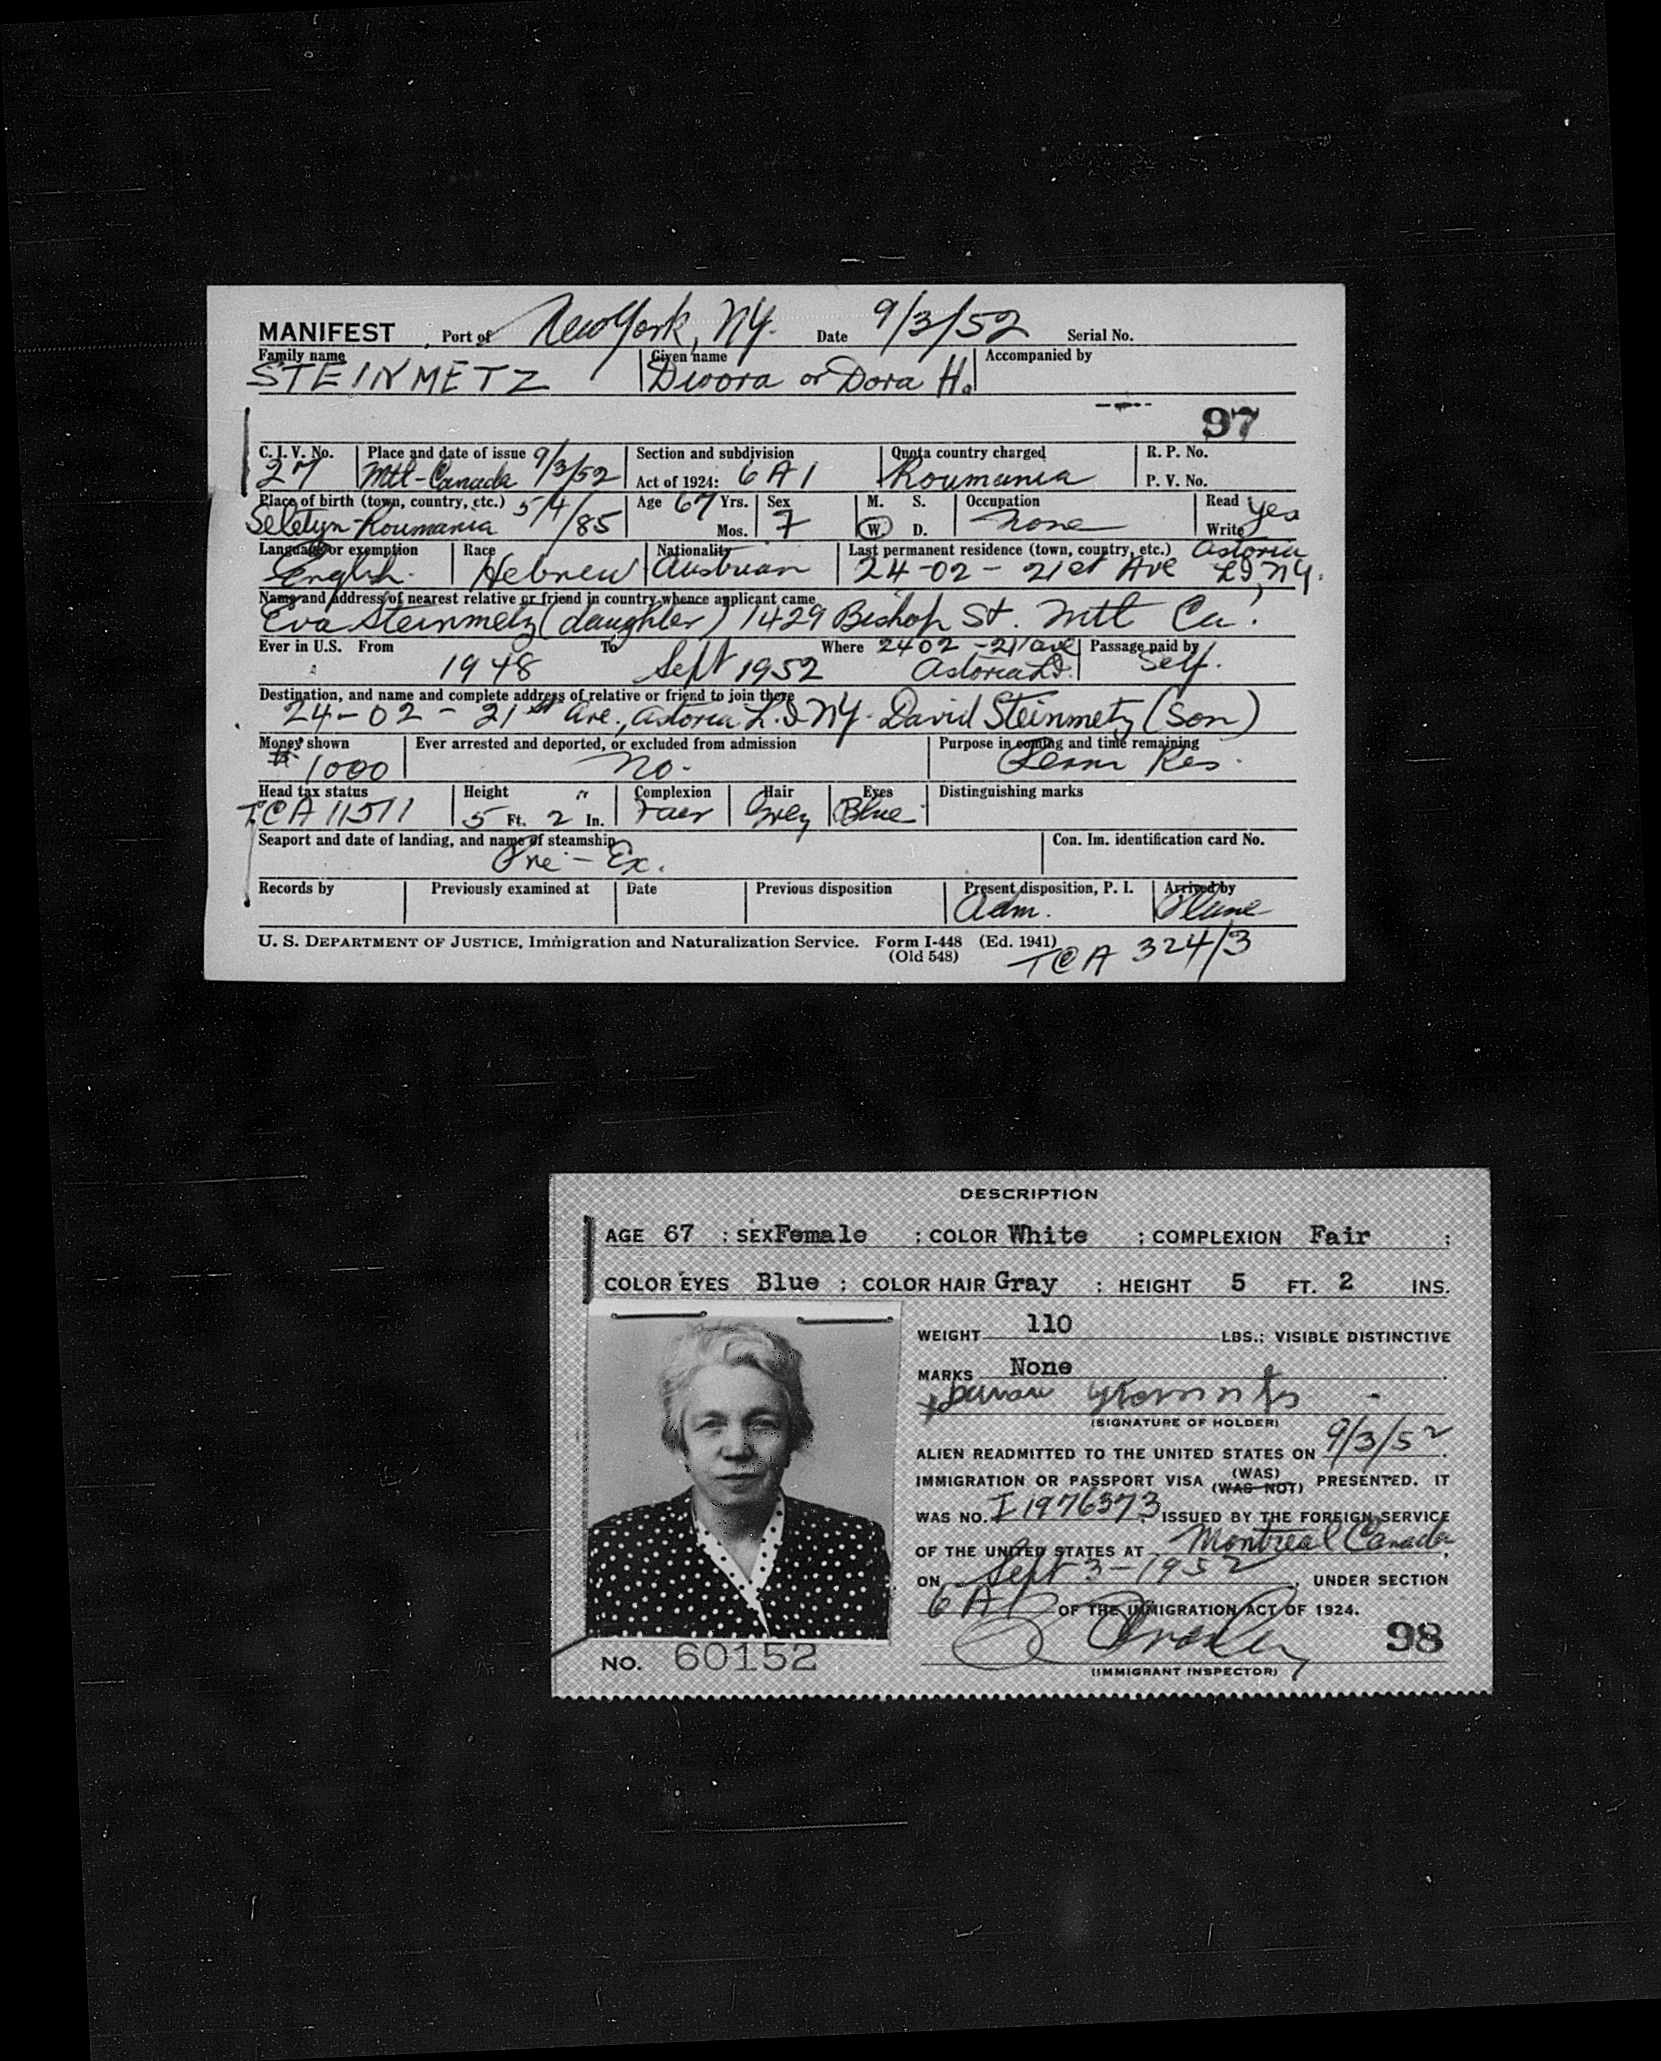 MANIFEST Port of New York, NY. Date 9/3/52 Serial No.
Family name Given name Accompanied by
STEINMETZ Dwora or Dora H.
97
C. I. V. No. Place and date of issue 9/3/52 Section and subdivision Quota country charged R. P. No.
27 Mtl-Canada Act of 1924: 6 A 1 Roumania P. V. No.
Place of birth (town, country, etc.) 5/4/85 Age 67 Yrs. Sex M. S. Occupation Read Yes
Seletyn-Roumania Mos. F W. D. none Write
Language or exemption Race Nationality Last permanent residence (town, country, etc.) Astoria
English. Hebrew Austrian 24-02-21st Ave L.I, NY.
Name and address of nearest relative or friend in country whence applicant came
Eva Steinmetz (daughter) 1429 Bishop St. Mtl Ca.
Ever in U.S. From To Where 2402-21 ave Passage paid by
1948 Sept 1952 Astoria L.I. Self.
Destination, and name and complete address of relative or friend to join there
24-02-21st Ave., Astoria L.I NY. David Steinmetz (Son)
Money shown Ever arrested and deported, or excluded from admission Purpose in coming and time remaining
$1000 No. Perm Res.
Head tax status Height Complexion Hair Eyes Distinguishing marks
TCA 11511 5 Ft. 2 In. Fair Grey Blue
Seaport and date of landing, and name of steamship Con. Im. identification card No.
Pre-Ex.
Records by Previously examined at Date Previous disposition Present disposition, P. I. Arrived by
Adm. Plane
U. S. DEPARTMENT OF JUSTICE, Immigration and Naturalization Service. Form I-448 (Ed. 1941)
(Old 548) TCA 324/3
DESCRIPTION
AGE 67 ; SEX Female ; COLOR White ; COMPLEXION Fair ;
COLOR EYES Blue ; COLOR HAIR Gray ; HEIGHT 5 FT. 2 INS.
WEIGHT 110 LBS.; VISIBLE DISTINCTIVE
MARKS None
(SIGNATURE OF HOLDER)
ALIEN READMITTED TO THE UNITED STATES ON 9/3/52.
IMMIGRATION OR PASSPORT VISA (WAS) (WAS NOT) PRESENTED. IT
WAS NO. I 1976373, ISSUED BY THE FOREIGN SERVICE
OF THE UNITED STATES AT Montreal Canada,
ON Sept 3-1952, UNDER SECTION
6 A 1 OF THE IMMIGRATION ACT OF 1924.
98
(IMMIGRANT INSPECTOR)
NO. 60152